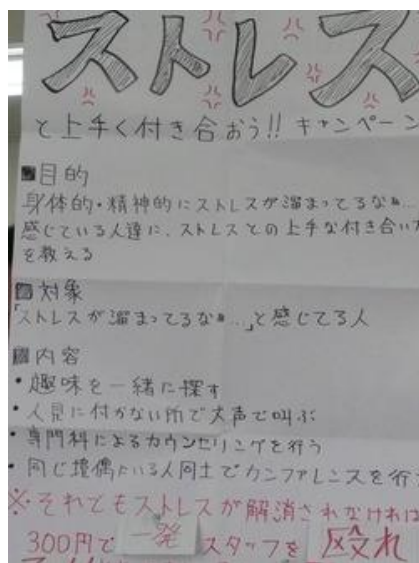 ストレス
と上手く付き合おう!! キャンペーン
■目的
身体的・精神的にストレスが溜まってるなぁ…
感じている人達に、ストレスとの上手な付き合い方
を教える
■対象
「ストレスが溜まってるなぁ…」と感じてる人
■内容
・趣味を一緒に探す
・人見に付かない所で大声で叫ぶ
・専門科によるカウンセリングを行う
・同じ境偶にいる人同士でカンファレンスを行う
※それでもストレスが解消されなければ
300円で一発スタッフを殴れ